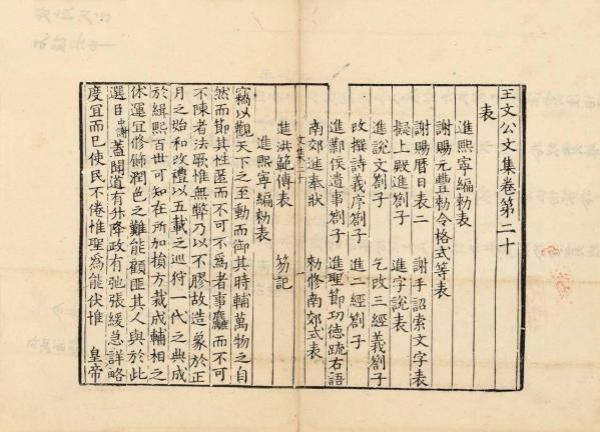 王文公文集卷第二十
表
進熙寧編勑表
謝賜元豐勑令格式等表
謝賜曆日表二 謝手詔索文字表
擬上殿進劄子 進字說表
進說文劄子 乞改三經義劄子
改撰詩義序劄子 進二經劄子
進鄴侯遺事劄子 進聖節功德疏右語
南郊進奉狀 勑修南郊式表
進洪範傳表 笏記
進熙寧編勑表
竊以觀天下之至動而御其時輔萬物之自
然而節其性匿而不可不為者事麤而不可
不陳者法厥惟無弊乃以不膠故造象於正
月之始和改禮以五載之巡狩一代之典成
於緝熙百世可知在所加損方裁成輔相之
休運宜修飾潤色之難能顧匪其人與於此
選臣中謝蓋聞道有升降政有弛張緩急詳略
度宜而已使民不倦惟聖為能伏惟 皇帝